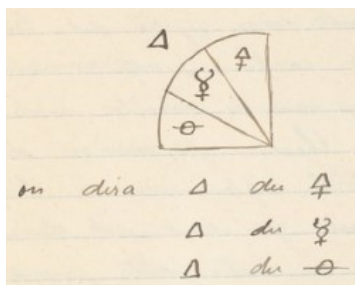 △
🜍
☿
🜔
on dira △ du 🜍
△ du ☿
△ du 🜔